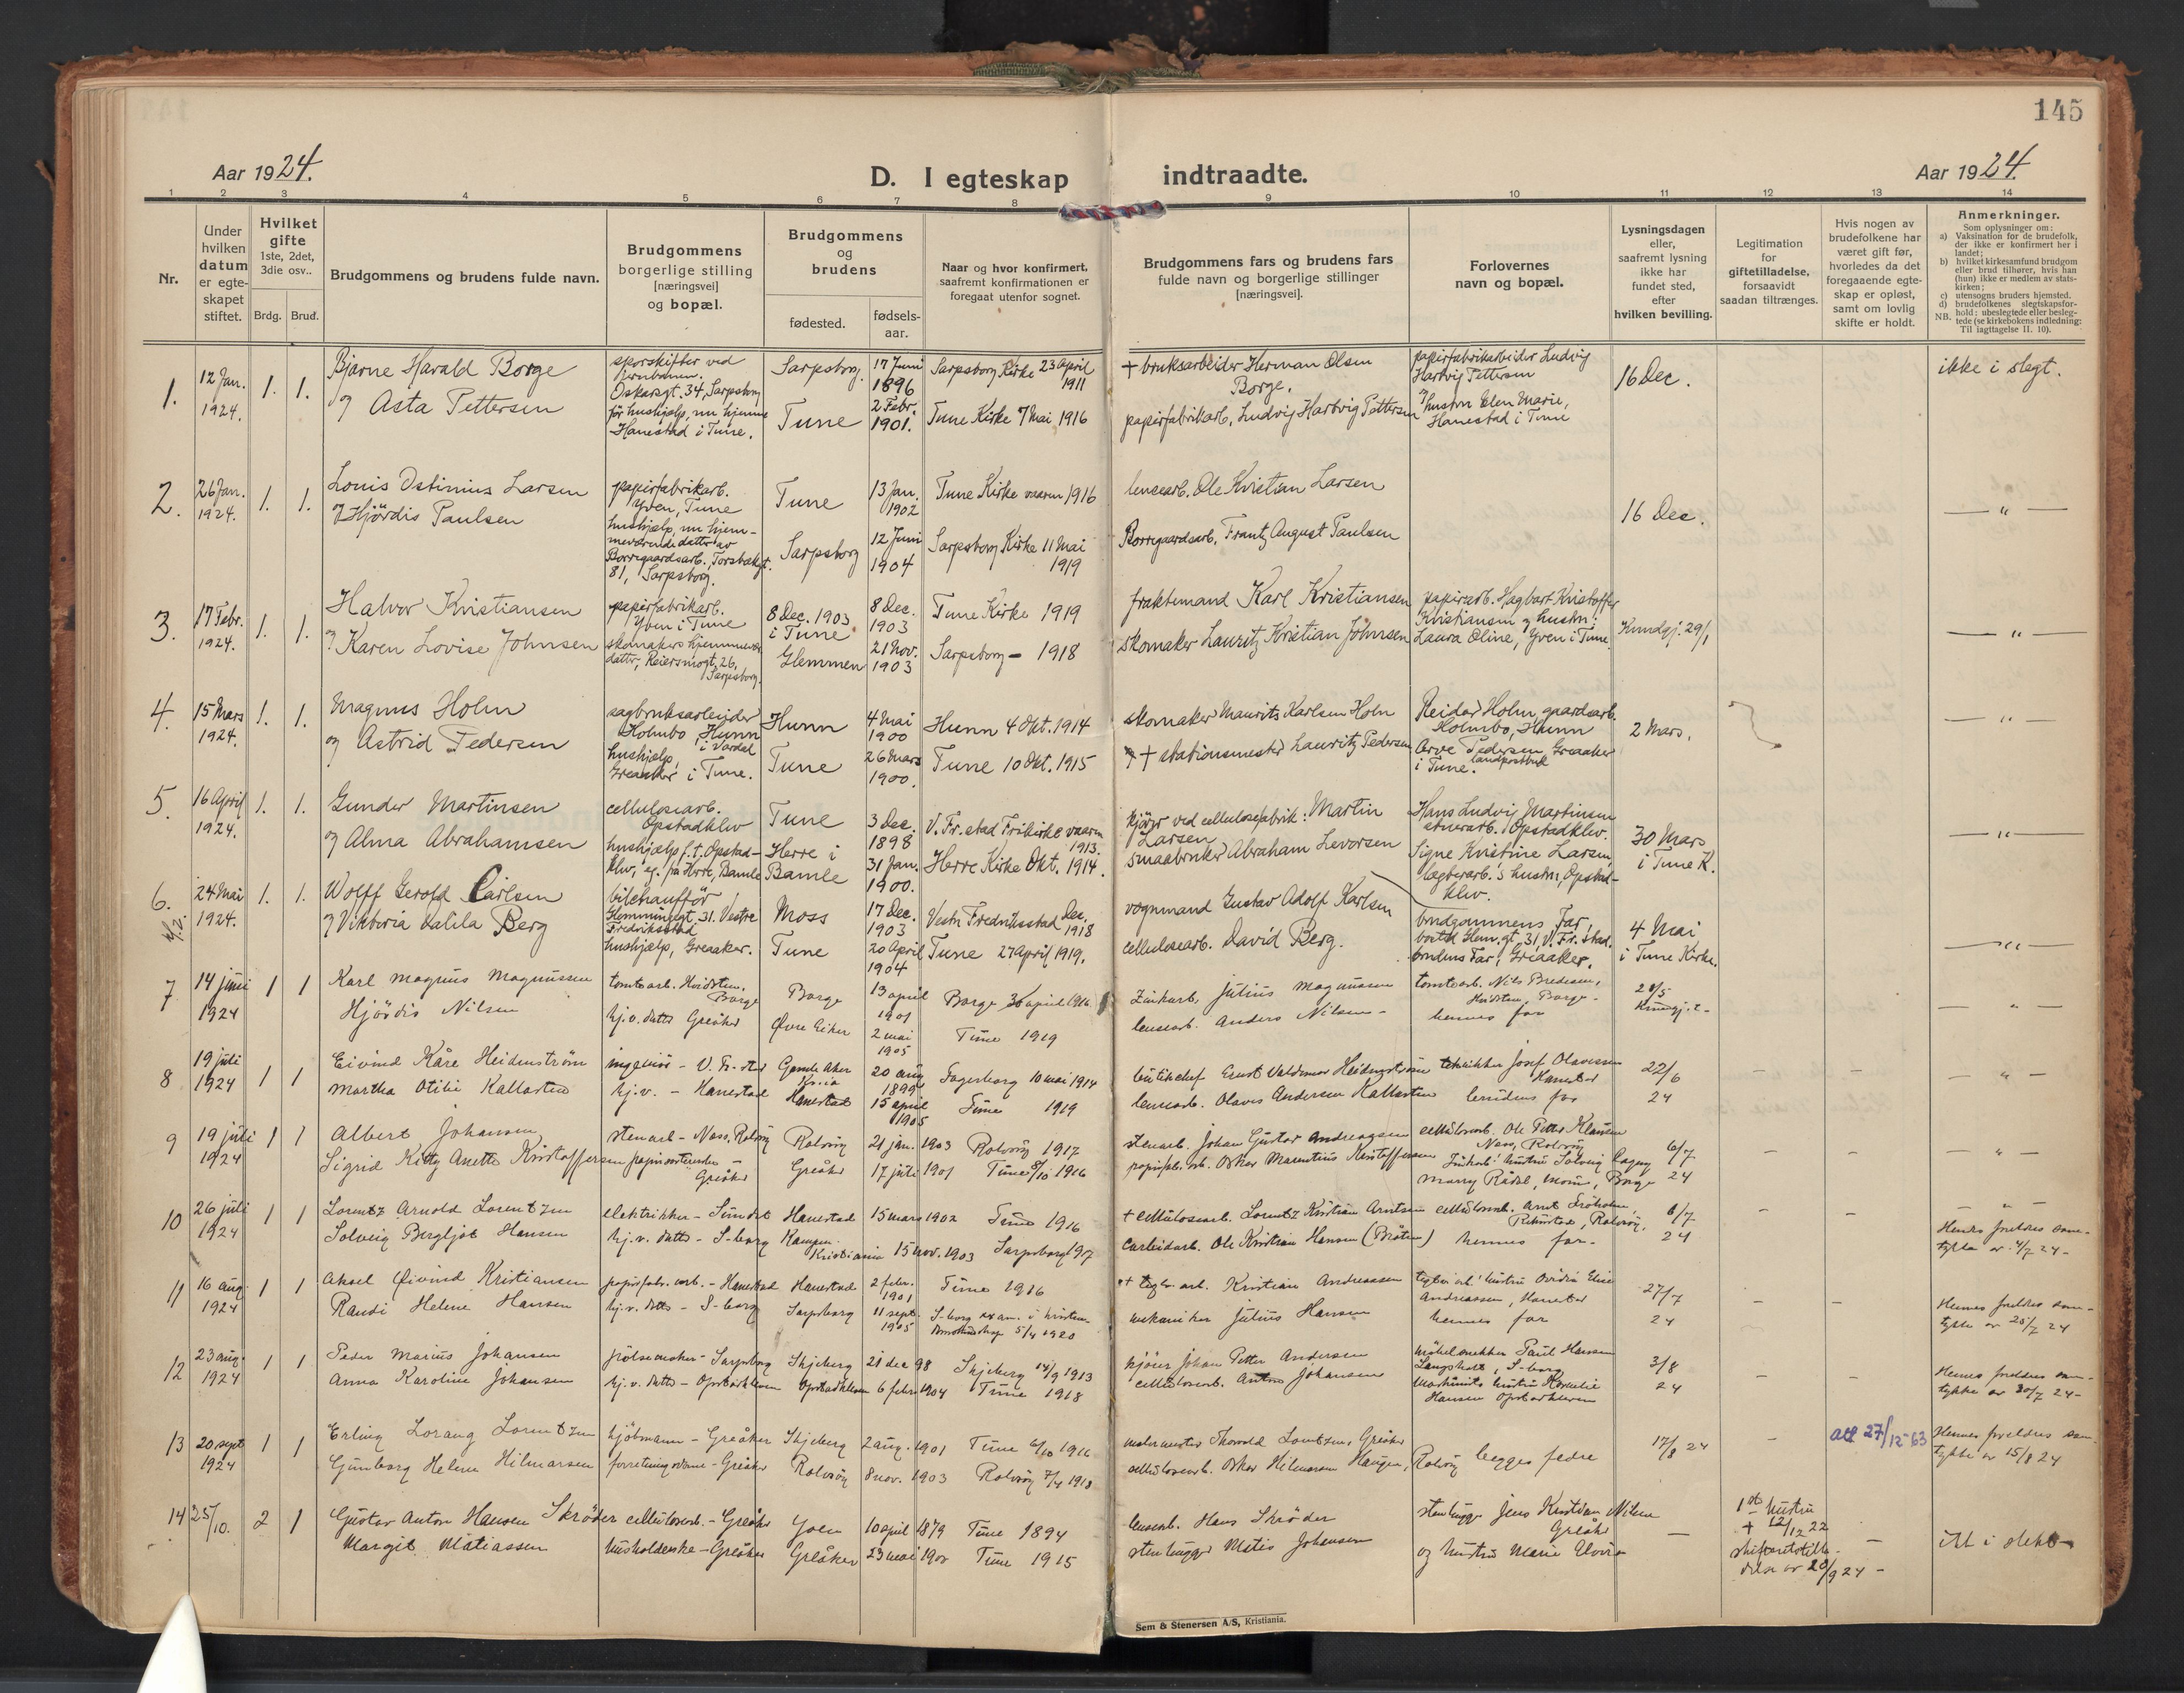 145
Aar 1924.
D. I egteskap indtraadte.
Aar 1924.
1 2 3 4 5 6 7 8 9 10 11 12 13 14
Nr.
Under hvilken datum er egteskapet stiftet.
Hvilket gifte 1ste, 2det, 3die osv..
Brdg. Brud.
Brudgommens og brudens fulde navn.
Brudgommens borgerlige stilling [næringsvei] og bopæl.
Brudgommens og brudens
fødested.
fødselsaar.
Naar og hvor konfirmert, saafremt konfirmationen er foregaat utenfor sognet.
Brudgommens fars og brudens fars fulde navn og borgerlige stillinger [næringsvei].
Forlovernes navn og bopæl.
Lysningsdagen eller, saafremt lysning ikke har fundet sted, efter hvilken bevilling.
Legitimation for giftetilladelse, forsaavidt saadan tiltrænges.
Hvis nogen av brudefolkene har været gift før, hvorledes da det foregaaende egteskap er opløst, samt om lovlig skifte er holdt.
Anmerkninger.
Som oplysninger om:
a) Vaksination for de brudefolk, der ikke er konfirmert her i landet;
b) hvilket kirkesamfund brudgom eller brud tilhører, hvis han (hun) ikke er medlem av statskirken;
c) utensogns bruders hjemsted.
d) brudefolkenes slegtskapsforhold: ubeslegtede eller beslegtede (se kirkebokens indledning: Til iagttagelse II. 10).
NB.
1. 12 Jan. 1924. 1. 1.
Bjarne Harald Borge
og Asta Pettersen
sporskifter ved jernbanen. Oskarsgt. 34, Sarpsborg
før hushjælp, nu hjemme Hanestad i Tune.
Sarpsborg 17 Juni 1896 Sarpsborg Kirke 23 April 1911
Tune 2 Febr. 1901. Tune Kirke 7 Mai 1916
+ bruksarbeider Herman Olsen Borge.
papirfabrikarb. Ludvig Hartvig Pettersen
papirfabrikarbeider Ludvig Hartvig Pettersen
og hustru Elen Marie, Hanestad i Tune
16 Dec.
ikke i slegt.
2. 26 Jan. 1924. 1. 1.
Louis Ostinius Larsen
og Hjördis Paulsen
papirfabrikarb. Yven, Tune
hushjælp, nu hjemmeværende datter av Borregaardsarb., Torsbækgt. 81, Sarpsborg.
Tune 13 Jan. 1902 Tune Kirke vaaren 1916
Sarpsborg 12 Juni 1904 Sarpsborg Kirke 11 Mai 1919
lensearb. Ole Kristian Larsen
Borregaardsarb. Frantz August Paulsen
16 Dec.
— " —
3. 17 Febr. 1924. 1. 1.
Halvor Kristiansen
og Karen Lovise Johnsen
papirfabrikarb. Yven i Tune
skomakers hjemmevær. datter, Reiersmogt, 26, Sarpsborg.
8 Dec. 1903 i Tune 8 Dec. 1903 Tune Kirke 1919
Glemmen 21 Nov. 1903 Sarpsborg — 1918
fraktemand Karl Kristiansen
skomaker Lauritz Kristian Johnsen
papirarb. Hagbart Kristoffer Kristiansen og hustru Laura Oline, Yven i Tune.
Kundgj. 29/1
— " —
4. 15 Mars 1924. 1. 1.
Magnus Holm
og Astrid Pedersen
sagbruksarbeider Holmbo, Hunn i Vardal
hushjelp, Greaaker i Tune.
Hunn 4 Mai 1900 Hunn 4 Okt. 1914
Tune 26 Mars 1900. Tune 10 Okt. 1915
skomaker Maurits Karlsen Holm
+ stationsmester Lauritz Pedersen
Reidar Holm, gaardsarb. Holmbo, Hunn
Arve Pedersen, Greaaker i Tune. landpostbud
2 Mars.
— " —
5. 16 April 1924. 1. 1.
Gunder Martinsen
og Alma Abrahamsen
cellulosearb. Opstadklev
hushjælp f. t. Opstadklev, eg. fra Herre, Bamle
Tune 3 Dec. 1898 V. Fr.stad Frikirke vaaren 1913.
Herre i Bamle 31 Jan. 1900. Herre Kirke Okt. 1914.
kjörer ved cellulosefabrik: Martin Larsen
smaabruker Abraham Levorsen
Hans Ludvig Martinsen stuerarb. Opstadklev.
Signe Kristine Larsen, lagterarb.'s hustru, Opstadklev.
30 Mars i Tune K.
— " —
6. 24 Mai 1924. 1. 1.
Wolff Gerold Carlsen
og Viktoria Dalila Berg
bilchauffør Glemmingegt. 31. Vestre Fredriksstad
hushjælp, Greaaker.
Moss 17 Dec. 1903 Vestre Fredriksstad Dec. 1918
Tune 20 April 1904 Tune 27 April 1919.
vognmand Gustav Adolf Karlsen
cellulosearb. David Berg.
brudgommens Far, bosted Glem.gt. 31, V. Fr.stad.
brudens Far, Greaaker.
4 Mai i Tune Kirke.
— " —
7 14 juni 1924 1 1
Karl Magnus Magnussen
Hjördis Nilsen
tomtearb. Hvidsten, Borge
hj.v. datter Greåker
Borge 13 april 1901 Borge 30 april 1916
Øvre Eiker 2 mai 1905 Tune 1919
Zinkarb. Julius Magnussen
lensearb. Anders Nilsen
tomtearb. Nils Bredesen, Hvidsten, Borge.
hennes far
28/5
— " —
8 19 juli 1924 1 1
Eivind Kåre Heidenström
Martha Otilie Kallastein
ingeniör - V. Fr.sted
hj.v. - Hanestad
Gamle Aker Kr.ia 20 aug 1899 Fagerborg 10 mai 1914
Hanestad 15 april 1905 Tune 1919
butikchef Ernst Valdemar Heidenström
lensearb. Olaves Andersen Kallastein
tekniker Josef Olavessen Hanestad
brudens far
22/6 24
— " —
9 19 juli 1924 1 1
Albert Johansen
Sigrid Kitty Anette Kristoffersen
stenarb - Ness, Rolvsøy
papirsorterske - Greåker
Rolvsøy 21 jan. 1903 Rolvsöy 1917
Greåker 17 juli 1901 Tune 8/10 1916
stenarb. Johan Gustav Andreassen
papirfabr. arb. Oskar Marentius Kristoffersen
cellulosearb. Ole Petter Klausen Ness, Rolvsøy
6/7 24
— " —
10 26 juli 1924 1 1
Lorentz Arnold Lorentzen
Solveig Bergljot Hansen
elektriker - Sundet
hj.v. datter - S-borg
Hanestad 15 mars 1902 Tune 1916
Kampen Kristiania 15 nov. 1903 Sarpsborg 1917
+ cellulosearb. Lorentz Kristian Arntsen
carbidarb. Ole Kristian Hansen (Bråten)
hennes far
6/7 24
Hennes foreldres samtykke av 4/7 24 -
11 16 aug 1924 1 1
Aksel Øivind Kristiansen
Randi Helene Hansen
papirfabr. arb. - Hanestad
hj.v. datter - S-borg
Hanestad 2 febr. 1901 Tune 1916
Sarpsborg 11 sept 1905
+ teglv. arb. Kristian Andreassen
mekaniker Julius Hansen
hennes far
27/7 24
Hennes foreldres samtykke av 25/7 24
12 23 aug. 1924 1 1
Peder Marius Johansen
Anna Karoline Johansen
pölsemaker - Sarpsborg
hj.v. datter - Opstadkleven
Skjeberg 21 dec 98 Skjeberg 14/9 1913
Opstadkleven 6 febr 1904 Tune 1918
kjörer Johan Petter Andersen
cellulosearb. Anton Johansen
möbelsnekker Paul Hansen
3/8 24
Hennes foreldres samtykke av 30/7 24 -
13 20 sept 1924 1 1
Erling Lorang Lorentzen
Gunborg Helene Hilmarsen
kjöbmann - Greåker
forretningsdame - Greåker
Skjeberg 2 aug. 1901 Tune 6/10 1916
Rolvsöy 8 nov. 1903 Rolvsöy 7/4 1918
malermester Thorvald Lorentzen, Greåker
cellulosearb. Oskar Hilmarsen Haugen, Rolvsöy
begges fedre
17/8 24
att 27/12-63
Hennes foreldres samtykke av 15/8 24
14 25/10. 2 1
Gustav Anton Hansen Skröder
Margit Matiassen
cellulosearb. - Greåker
husholderske - Greåker
Yven 10 april 1879 Tune 1894
Greåker 23 mai 1900 Tune 1915
lensearb. Hans Skröder
stenhugger Matis Johansen
stenhugger Jens Kristian Nilsen Greåker
og hustru Marie Elvira
—
1ste hustru + 12/12 22
skifteattest
av 20/9 24 -
Sem & Stenersen A/S, Kristiania.